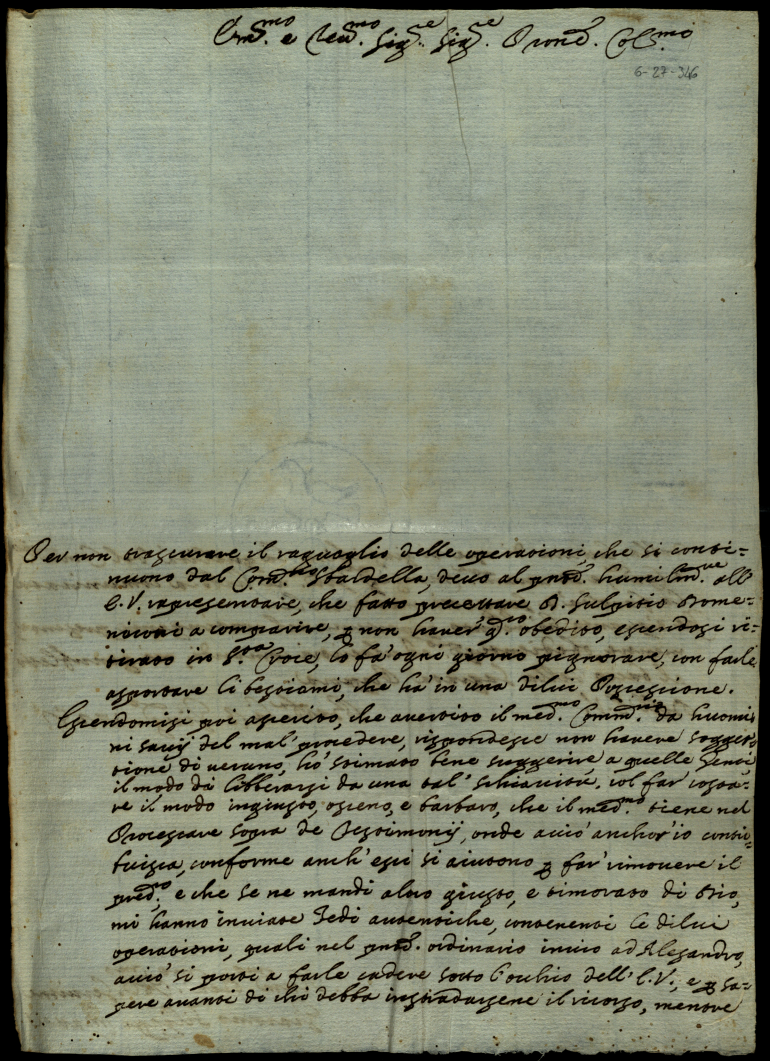 Em.mo e Reu.mo Sig.re Sig.re Pron. Col.mo
6-27-346
Per non trascurare il raguaglio delle operationi, che si conti=
nuono dal Com.rio Sbaldella, deuo al pnte humilm.te all'
E.V. rapresentare, che fatto precettare D. Sulpitio Dome-
niconi a comparire, p non hauer' obedito, essendosi ri-
tirato in S.ta Croce, lo fa' ogni giorno pignorare, con farle
asportare li bestiami, che ha' in una di lui Possessione.
Essendomisi poi asserito, che auertito il med.mo Comm.rio da huomi
ni sauij del mal' procedere, rispondesse non hauere sogget-
tione di ueruno, hò stimato bene suggerire a quelle Genti
il modo di libberarsi da una tal' schiauitù, col far' costa-
re il modo ingiusto, osceno, e barbaro, che il med.mo tiene nel
Processare sopra de Testimonij, onde acciò anchor' io conti-
buisca, conforme anch' essi si aiutono p far' rimouere il
pred.o e che se ne mandi altro giusto, e timorato di Dio,
mi hanno inuiate Fedi autentiche, contenenti le di lui
operationi, quali nel pnte ordinario inuio ad Alesandro,
acciò si porti a farle cadere sotto l'occhio dell' E.V., e p sa-
pere auanti di chi debba instradarsene il ricorso, mentre